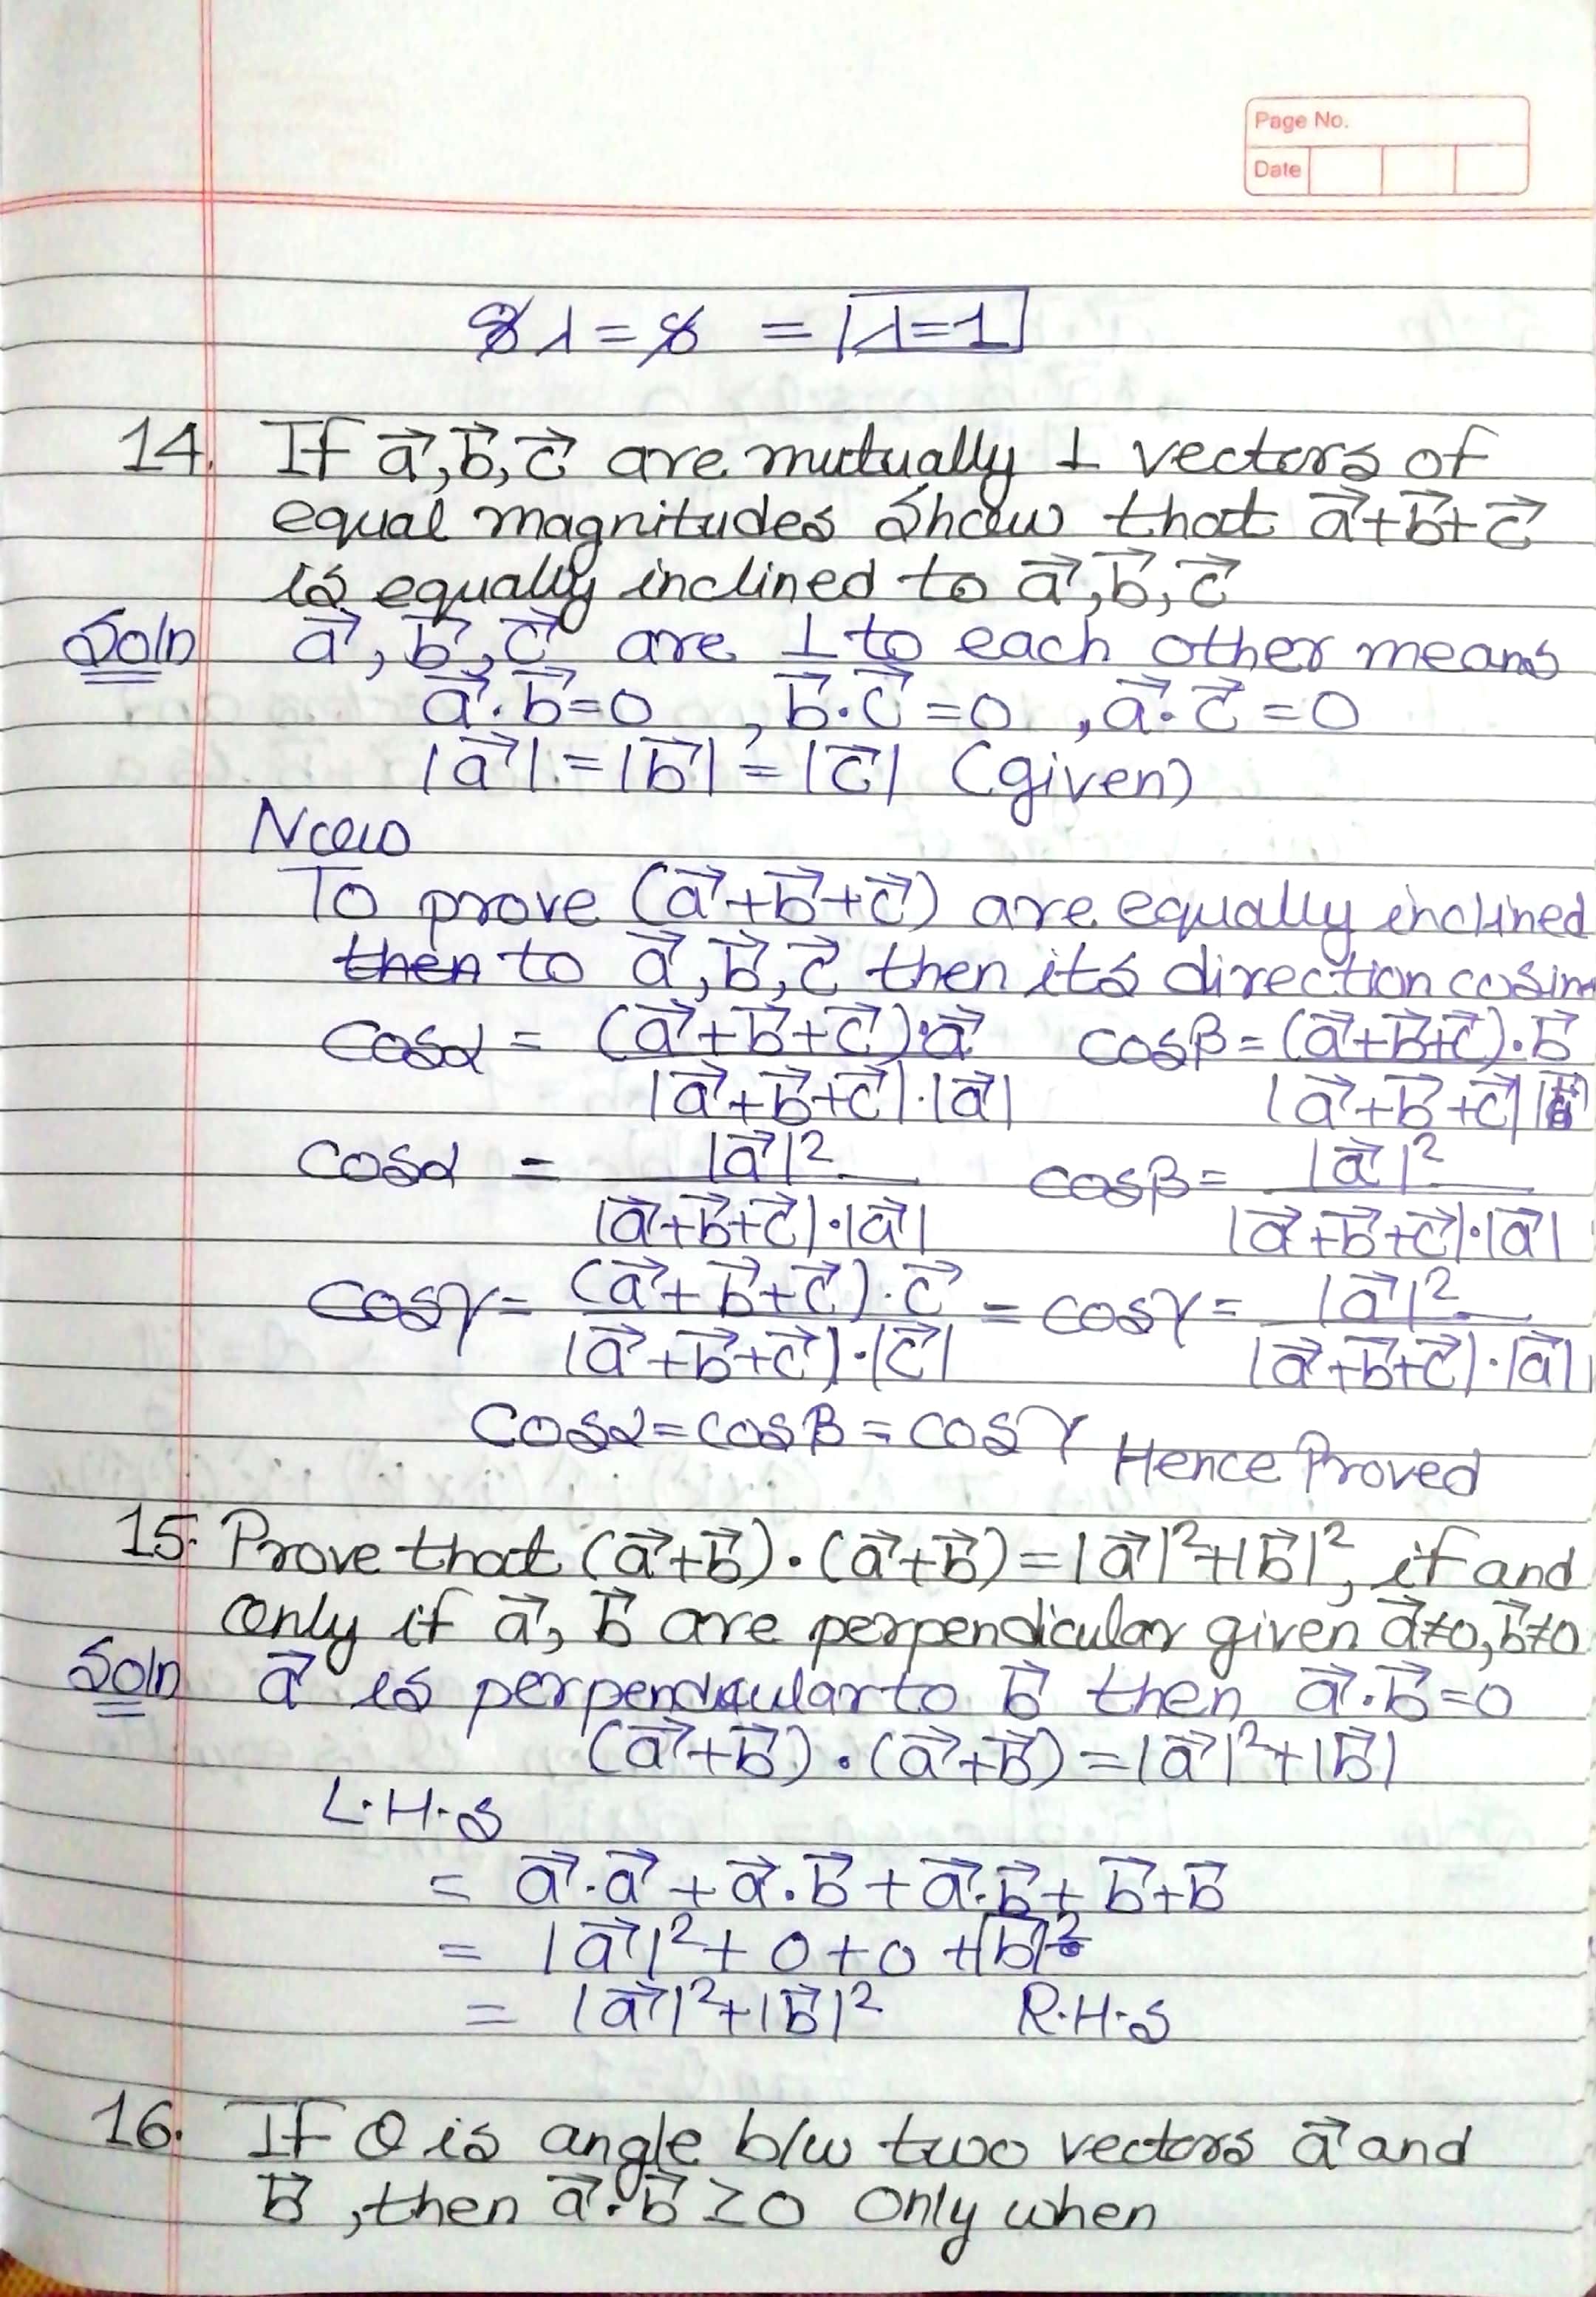 Page No.
Date
8λ = 8 = |λ=1|
14. If a⃗, b⃗, c⃗ are mutually ⊥ vectors of
equal magnitudes Show that a⃗+b⃗+c⃗
is equally inclined to a⃗, b⃗, c⃗
Soln a⃗, b⃗, c⃗ are ⊥ to each other means
a⃗·b⃗=0 , b⃗·c⃗=0 , a⃗·c⃗=0
|a⃗| = |b⃗| = |c⃗| (given)
Now
To prove (a⃗+b⃗+c⃗) are equally inclined
then to a⃗, b⃗, c⃗ then its direction cosin
cosα = (a⃗+b⃗+c⃗)·a⃗ cosβ = (a⃗+b⃗+c⃗)·b⃗
|a⃗+b⃗+c⃗|·|a⃗| |a⃗+b⃗+c⃗|
cosα = |a⃗|² cosβ = |a⃗|²
|a⃗+b⃗+c⃗|·|a⃗| |a⃗+b⃗+c⃗|·|a⃗|
cosγ = (a⃗+b⃗+c⃗)·c⃗ = cosγ = |a⃗|²
|a⃗+b⃗+c⃗|·|c⃗| |a⃗+b⃗+c⃗|·|a⃗|
cosα = cosβ = cosγ Hence Proved
15. Prove that (a⃗+b⃗)·(a⃗+b⃗) = |a⃗|²+|b⃗|², if and
only if a⃗, b⃗ are perpendicular given a⃗≠0, b⃗≠0
Soln a⃗ is perpendicular to b⃗ then a⃗·b⃗=0
(a⃗+b⃗)·(a⃗+b⃗) = |a⃗|²+|b⃗|
L.H.S
= a⃗·a⃗ + a⃗·b⃗ + a⃗·b⃗ + b⃗+b⃗
= |a⃗|² + 0 + 0 + |b⃗|²
= |a⃗|²+|b⃗|² R.H.S
16. If θ is angle b/w two vectors a⃗ and
b⃗, then a⃗·b⃗ ≥ 0 Only when